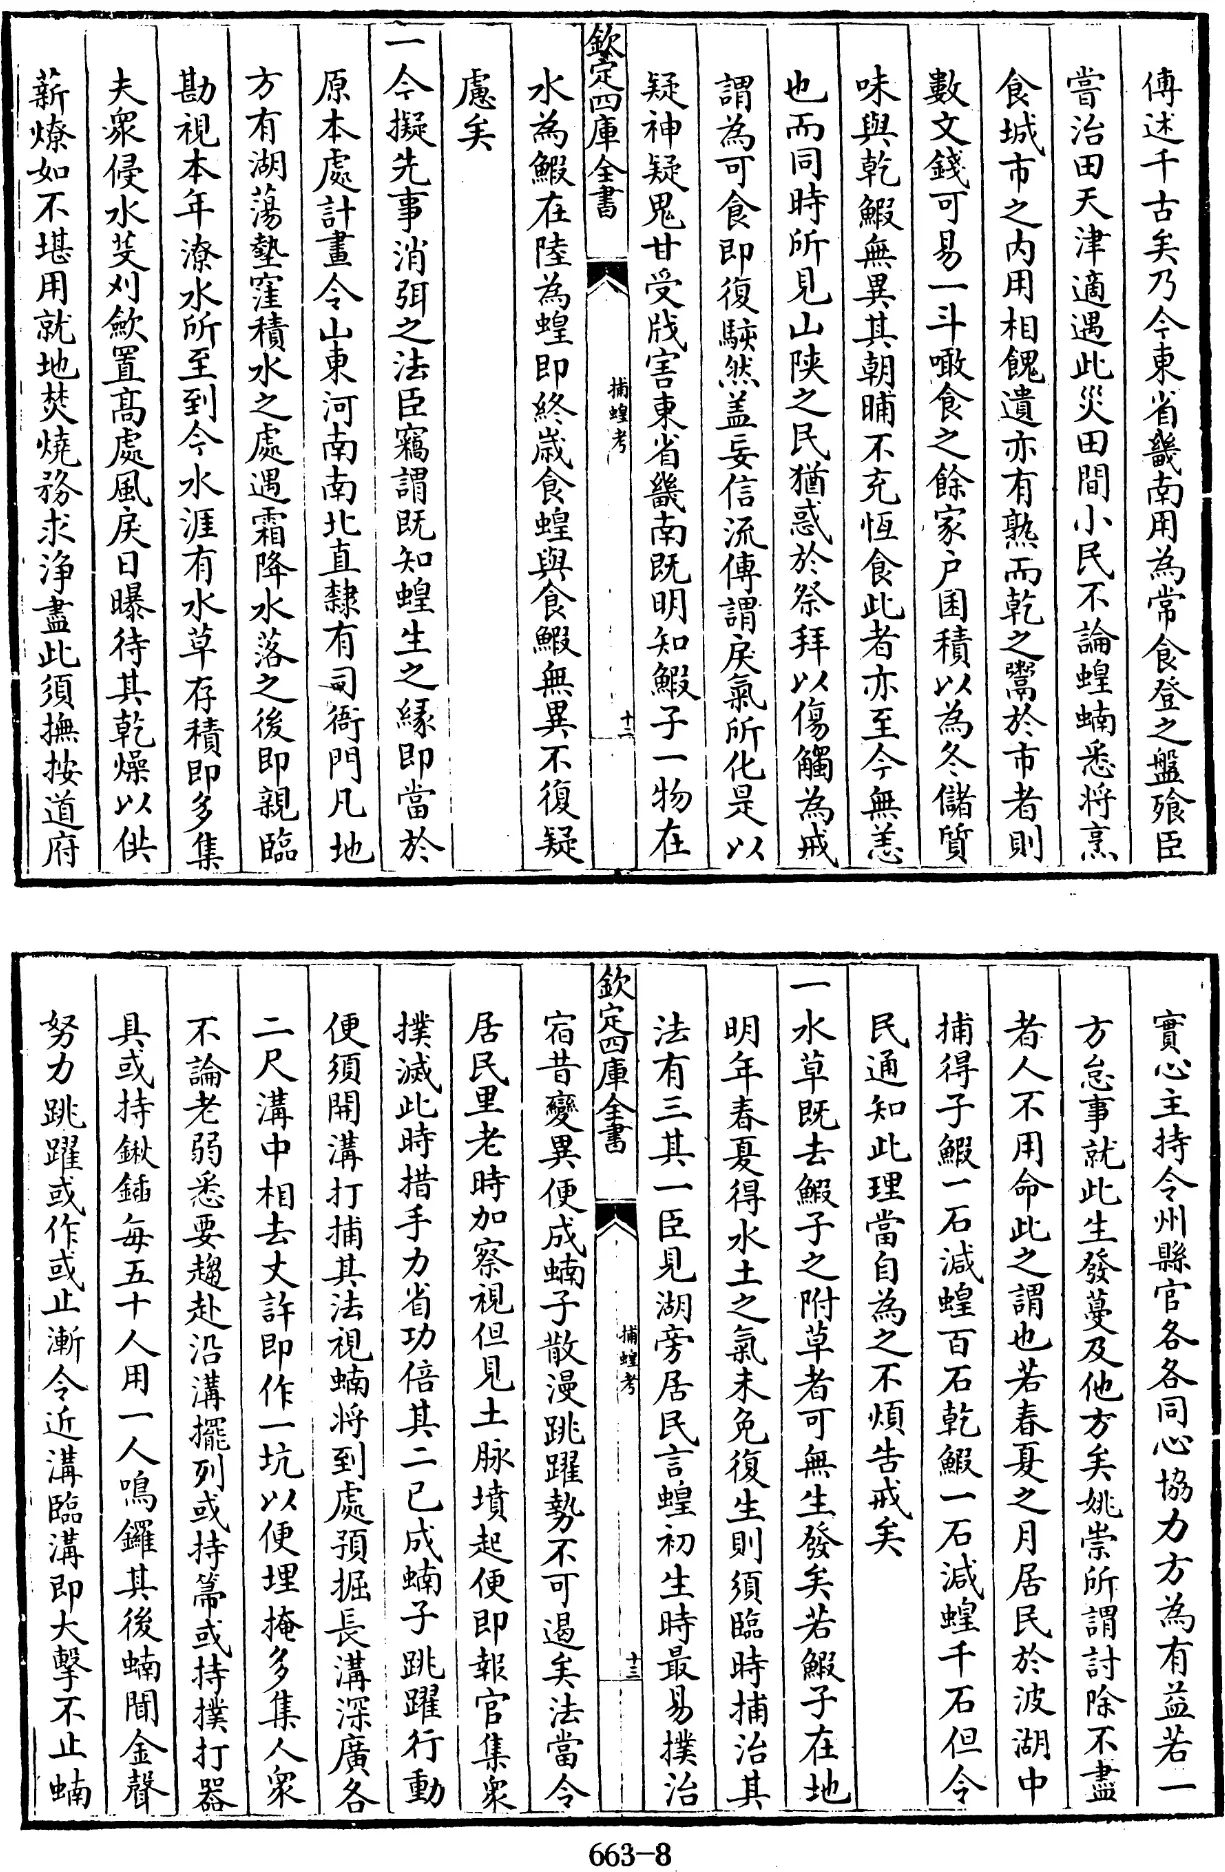 傳述千古矣乃今東省畿南用為常食登之盤飱臣
嘗治田天津適遇此災田間小民不論蝗蝻悉將烹
食城市之内用相餽遺亦有熟而乾之鬻於市者則
數文錢可易一斗噉食之餘家户囷積以為冬儲質
味與乾鰕無異其朝晡不充恒食此者亦至今無恙
也而同時所見山陜之民猶惑於祭拜以傷觸為戒
謂為可食即復駭然盖妄信流傳謂戾氣所化是以
疑神疑鬼甘受戕害東省畿南既明知鰕子一物在
欽定四庫全書
捕蝗考
十二
水為鰕在陸為蝗即終嵗食蝗與食鰕無異不復疑
慮矣
一今擬先事消弭之法臣竊謂既知蝗生之緣即當於
原本處計畫令山東河南南北直隸有司衙門凡地
方有湖蕩墊窪積水之處遇霜降水落之後即親臨
勘視本年潦水所至到今水涯有水草存積即多集
夫衆侵水芟刈斂置髙處風戾日曝待其乾燥以供
薪燎如不堪用就地焚燒務求浄盡此須撫按道府
實心主持令州縣官各各同心協力方為有益若一
方怠事就此生發蔓及他方矣姚崇所謂討除不盡
者人不用命此之謂也若春夏之月居民於波湖中
捕得子鰕一石減蝗百石乾鰕一石減蝗千石但令
民通知此理當自為之不煩告戒矣
一水草既去鰕子之附草者可無生發矣若鰕子在地
明年春夏得水土之氣未免復生則須臨時捕治其
法有三其一臣見湖旁居民言蝗初生時最易撲治
欽定四庫全書
捕蝗考
十三
宿昔變異便成蝻子散漫跳躍勢不可遏矣法當令
居民里老時加察視但見土脉墳起便即報官集衆
撲滅此時措手力省功倍其二已成蝻子跳躍行動
便須開溝打捕其法視蝻將到處預掘長溝深廣各
二尺溝中相去丈許即作一坑以便埋掩多集人衆
不論老弱悉要趨赴沿溝擺列或持箒或持撲打器
具或持鍬鍤每五十人用一人鳴鑼其後蝻聞金聲
努力跳躍或作或止漸令近溝臨溝即大擊不止蝻
663-8